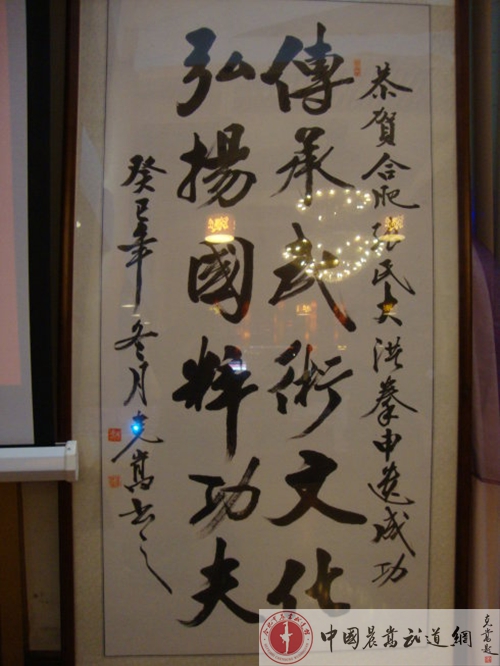 恭賀合肥張氏大洪拳申遺成功
傳承武術文化
弘揚國粹功夫
癸巳年冬月克嵩書之
中國晨嵩武道網